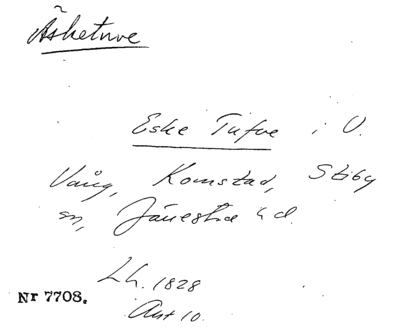 Äsketuve
Eske Tufve i V.
Vång, Komstad, Stiby
sn, Järrestad hd.
Lh. 1828
Akt 10.
Nr 7708.